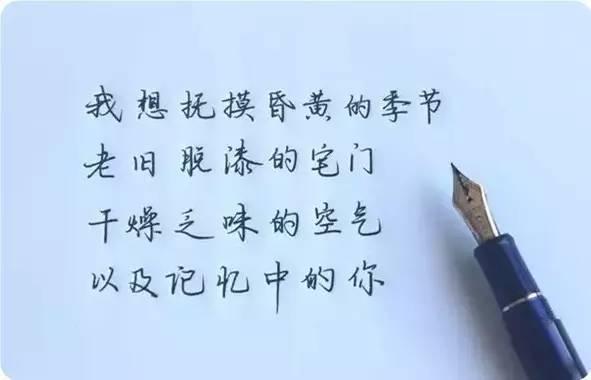 我想抚摸昏黄的季节
老旧脱漆的宅门
干燥乏味的空气
以及记忆中的你